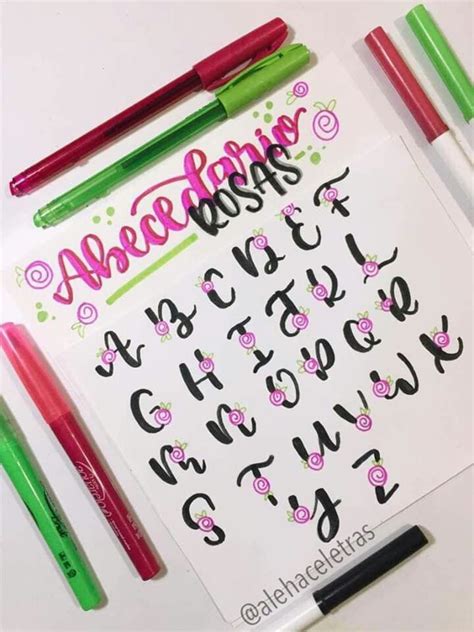 Abecedario
ROSAS
A B C D E F
G H I J K L
M N O P Q R
S T U V W X
Y Z
@alehaceletras